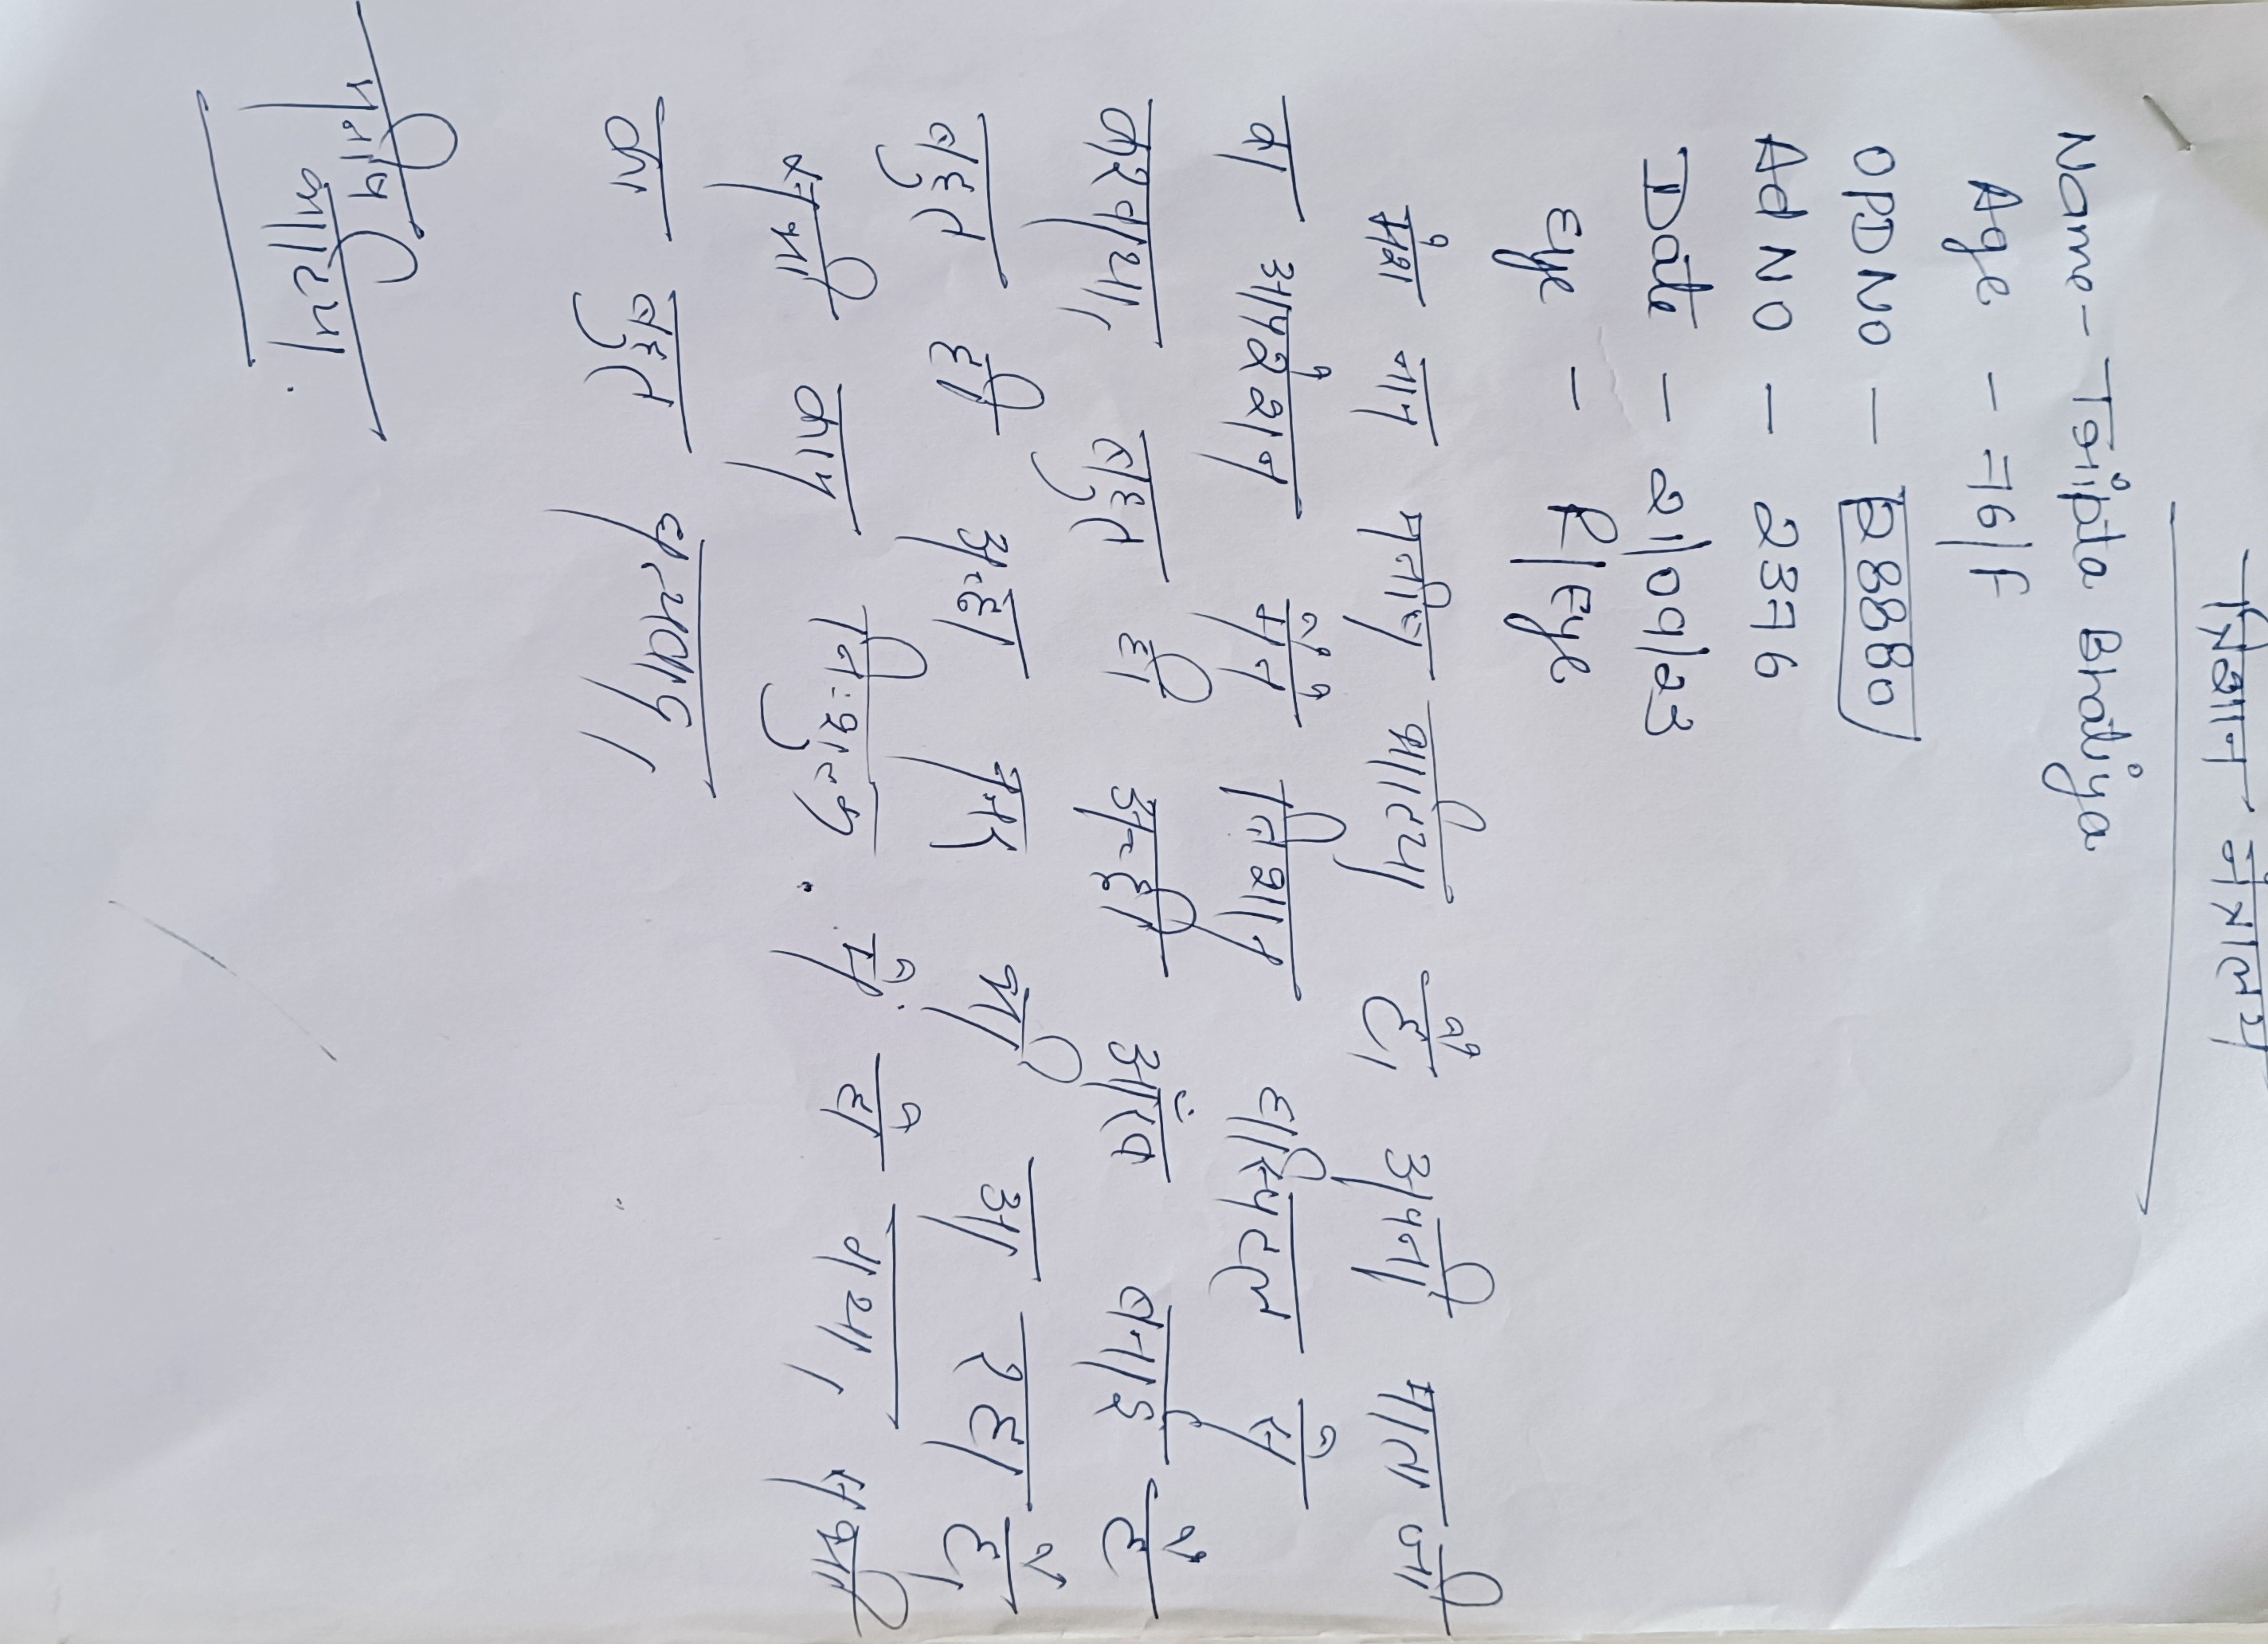 निशान नेत्रालय
Name - Tripta Bhatiya
Age - 76/F
OPD NO - D8880
Ad NO - 2376
Date - 21/09/23
Eye - R/Eye
मेरा नाम मनीष भाटिया है। अपनी माता जी
का आपरेशन मैंने निशान हास्पिटल से
करवाया, बहुत ही अच्छी आंख बनाई है
बहुत ही अच्छा नजर भी आ रहा है।
सभी काम निःशुल्क में हो गया। सभी
का बहुत धन्यवाद।
मनीष
भाटिया.